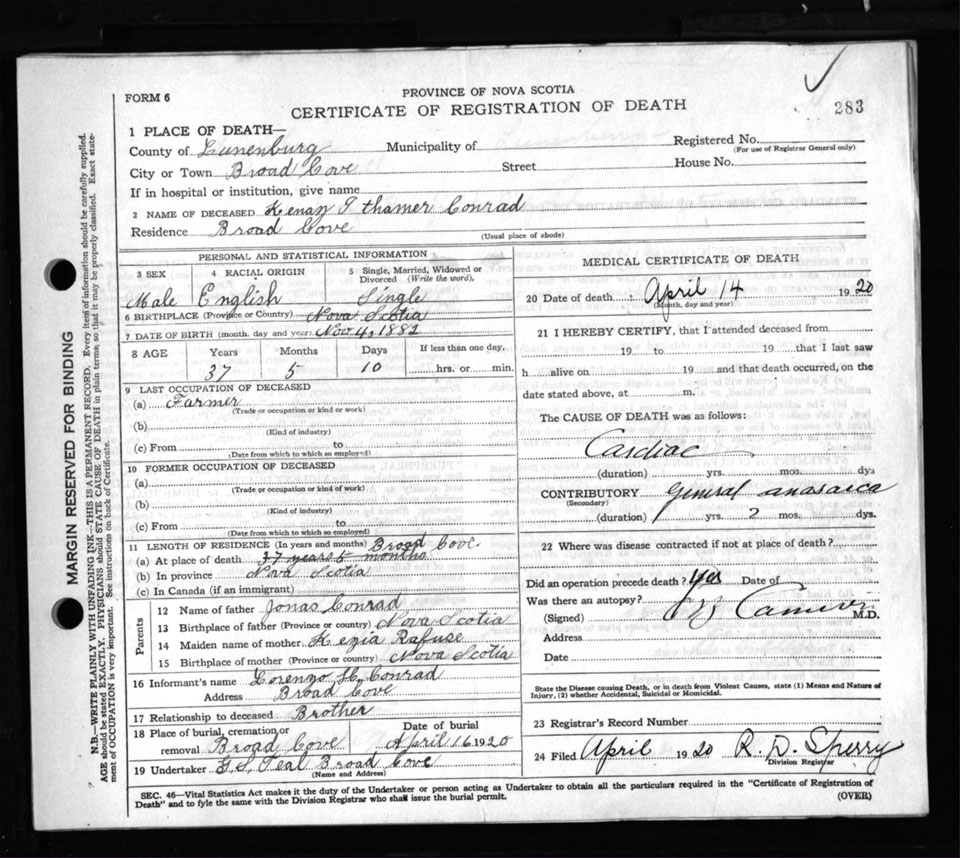 283
FORM 6
PROVINCE OF NOVA SCOTIA
CERTIFICATE OF REGISTRATION OF DEATH
1 PLACE OF DEATH—
County of Lunenburg Municipality of Registered No.
(For use of Registrar General only)
City or Town Broad Cove Street House No.
If in hospital or institution, give name
2 NAME OF DECEASED Ithamer Conrad
Residence Broad Cove
(Usual place of abode)
PERSONAL AND STATISTICAL INFORMATION
3 SEX 4 RACIAL ORIGIN 5 Single, Married, Widowed or
Divorced (Write the word).
Male English Single
6 BIRTHPLACE (Province or Country) Nova Scotia
7 DATE OF BIRTH (month, day and year) Nov 4, 1882
8 AGE Years Months Days If less than one day,
37 5 10 hrs. or min.
9 LAST OCCUPATION OF DECEASED
(a) Farmer
(Trade or occupation or kind or work)
(b)
(Kind of industry)
(c) From to
(Date from which to which so employed)
10 FORMER OCCUPATION OF DECEASED
(a)
(Trade or occupation or kind or work)
(b)
(Kind of industry)
(c) From to
(Date from which to which so employed)
11 LENGTH OF RESIDENCE (In years and months) Broad Cove
(a) At place of death 37 years 5 months
(b) In province Nova Scotia
(c) In Canada (if an immigrant)
Parents
12 Name of father Jonas Conrad
13 Birthplace of father (Province or country) Nova Scotia
14 Maiden name of mother Kezia Rafuse
15 Birthplace of mother (Province or country) Nova Scotia
16 Informant's name Lorenzo H. Conrad
Address Broad Cove
17 Relationship to deceased Brother
18 Place of burial, cremation or Date of burial
removal Broad Cove April 16 1920
19 Undertaker G. S. Teal Broad Cove
(Name and Address)
MEDICAL CERTIFICATE OF DEATH
20 Date of death April 14 1920
(Month, day and year)
21 I HEREBY CERTIFY, that I attended deceased from
19 to 19 that I last saw
h alive on 19 and that death occurred, on the
date stated above, at m.
The CAUSE OF DEATH was as follows:
Cardiac
(duration) yrs. mos. dys
CONTRIBUTORY General anasarca
(Secondary)
(duration) yrs. 2 mos. dys.
22 Where was disease contracted if not at place of death?
Did an operation precede death? Yes Date of
Was there an autopsy?
(Signed) M.D.
Address
Date
State the Disease causing Death, or in death from Violent Causes, state (1) Means and Nature of
Injury, (2) whether Accidental, Suicidal or Homicidal.
23 Registrar's Record Number
24 Filed April 1920 R. D. Sperry
Division Registrar
SEC. 46—Vital Statistics Act makes it the duty of the Undertaker or person acting as Undertaker to obtain all the particulars required in the "Certificate of Registration of
Death" and to fyle the same with the Division Registrar who shall issue the burial permit.
(OVER)
MARGIN RESERVED FOR BINDING
N.B.—WRITE PLAINLY WITH UNFADING INK—THIS IS A PERMANENT RECORD. Every item of information should be carefully supplied.
AGE should be stated EXACTLY. PHYSICIANS should STATE CAUSE OF DEATH in plain terms, so that it may be properly classified. Exact state-
ment of OCCUPATION is very important. See instructions on back of Certificate.